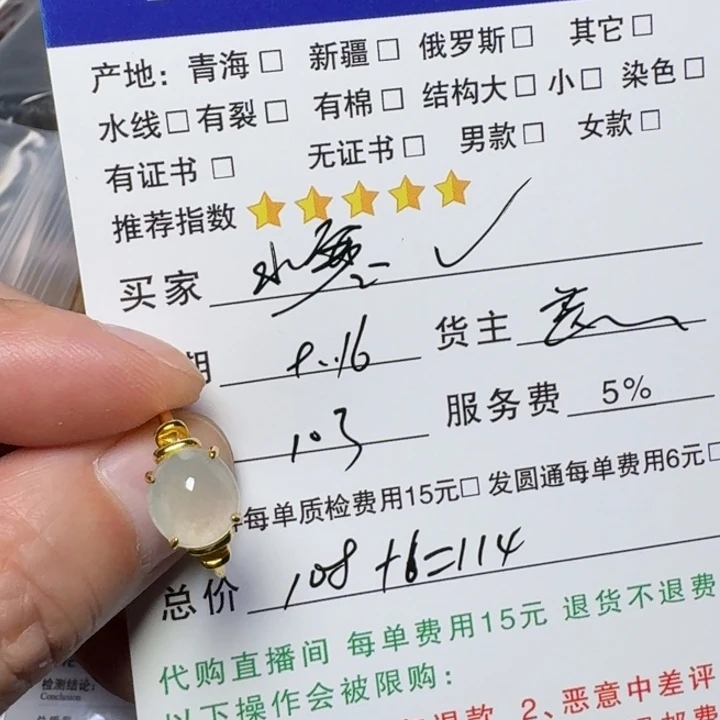 产地: 青海□ 新疆□ 俄罗斯□ 其它□
水线□ 有裂□ 有棉□ 结构大□ 小□ 染色□
有证书□ 无证书□ 男款□ 女款□
推荐指数
买家
期 8.16 货主
103 服务费 5%
每单质检费用15元□ 发圆通每单费用6元□
总价 108+6=114
代购直播间 每单费用15元 退货不退费
以下操作会被限购:
退款 2、恶意中差评
检测结论:
Conclusion